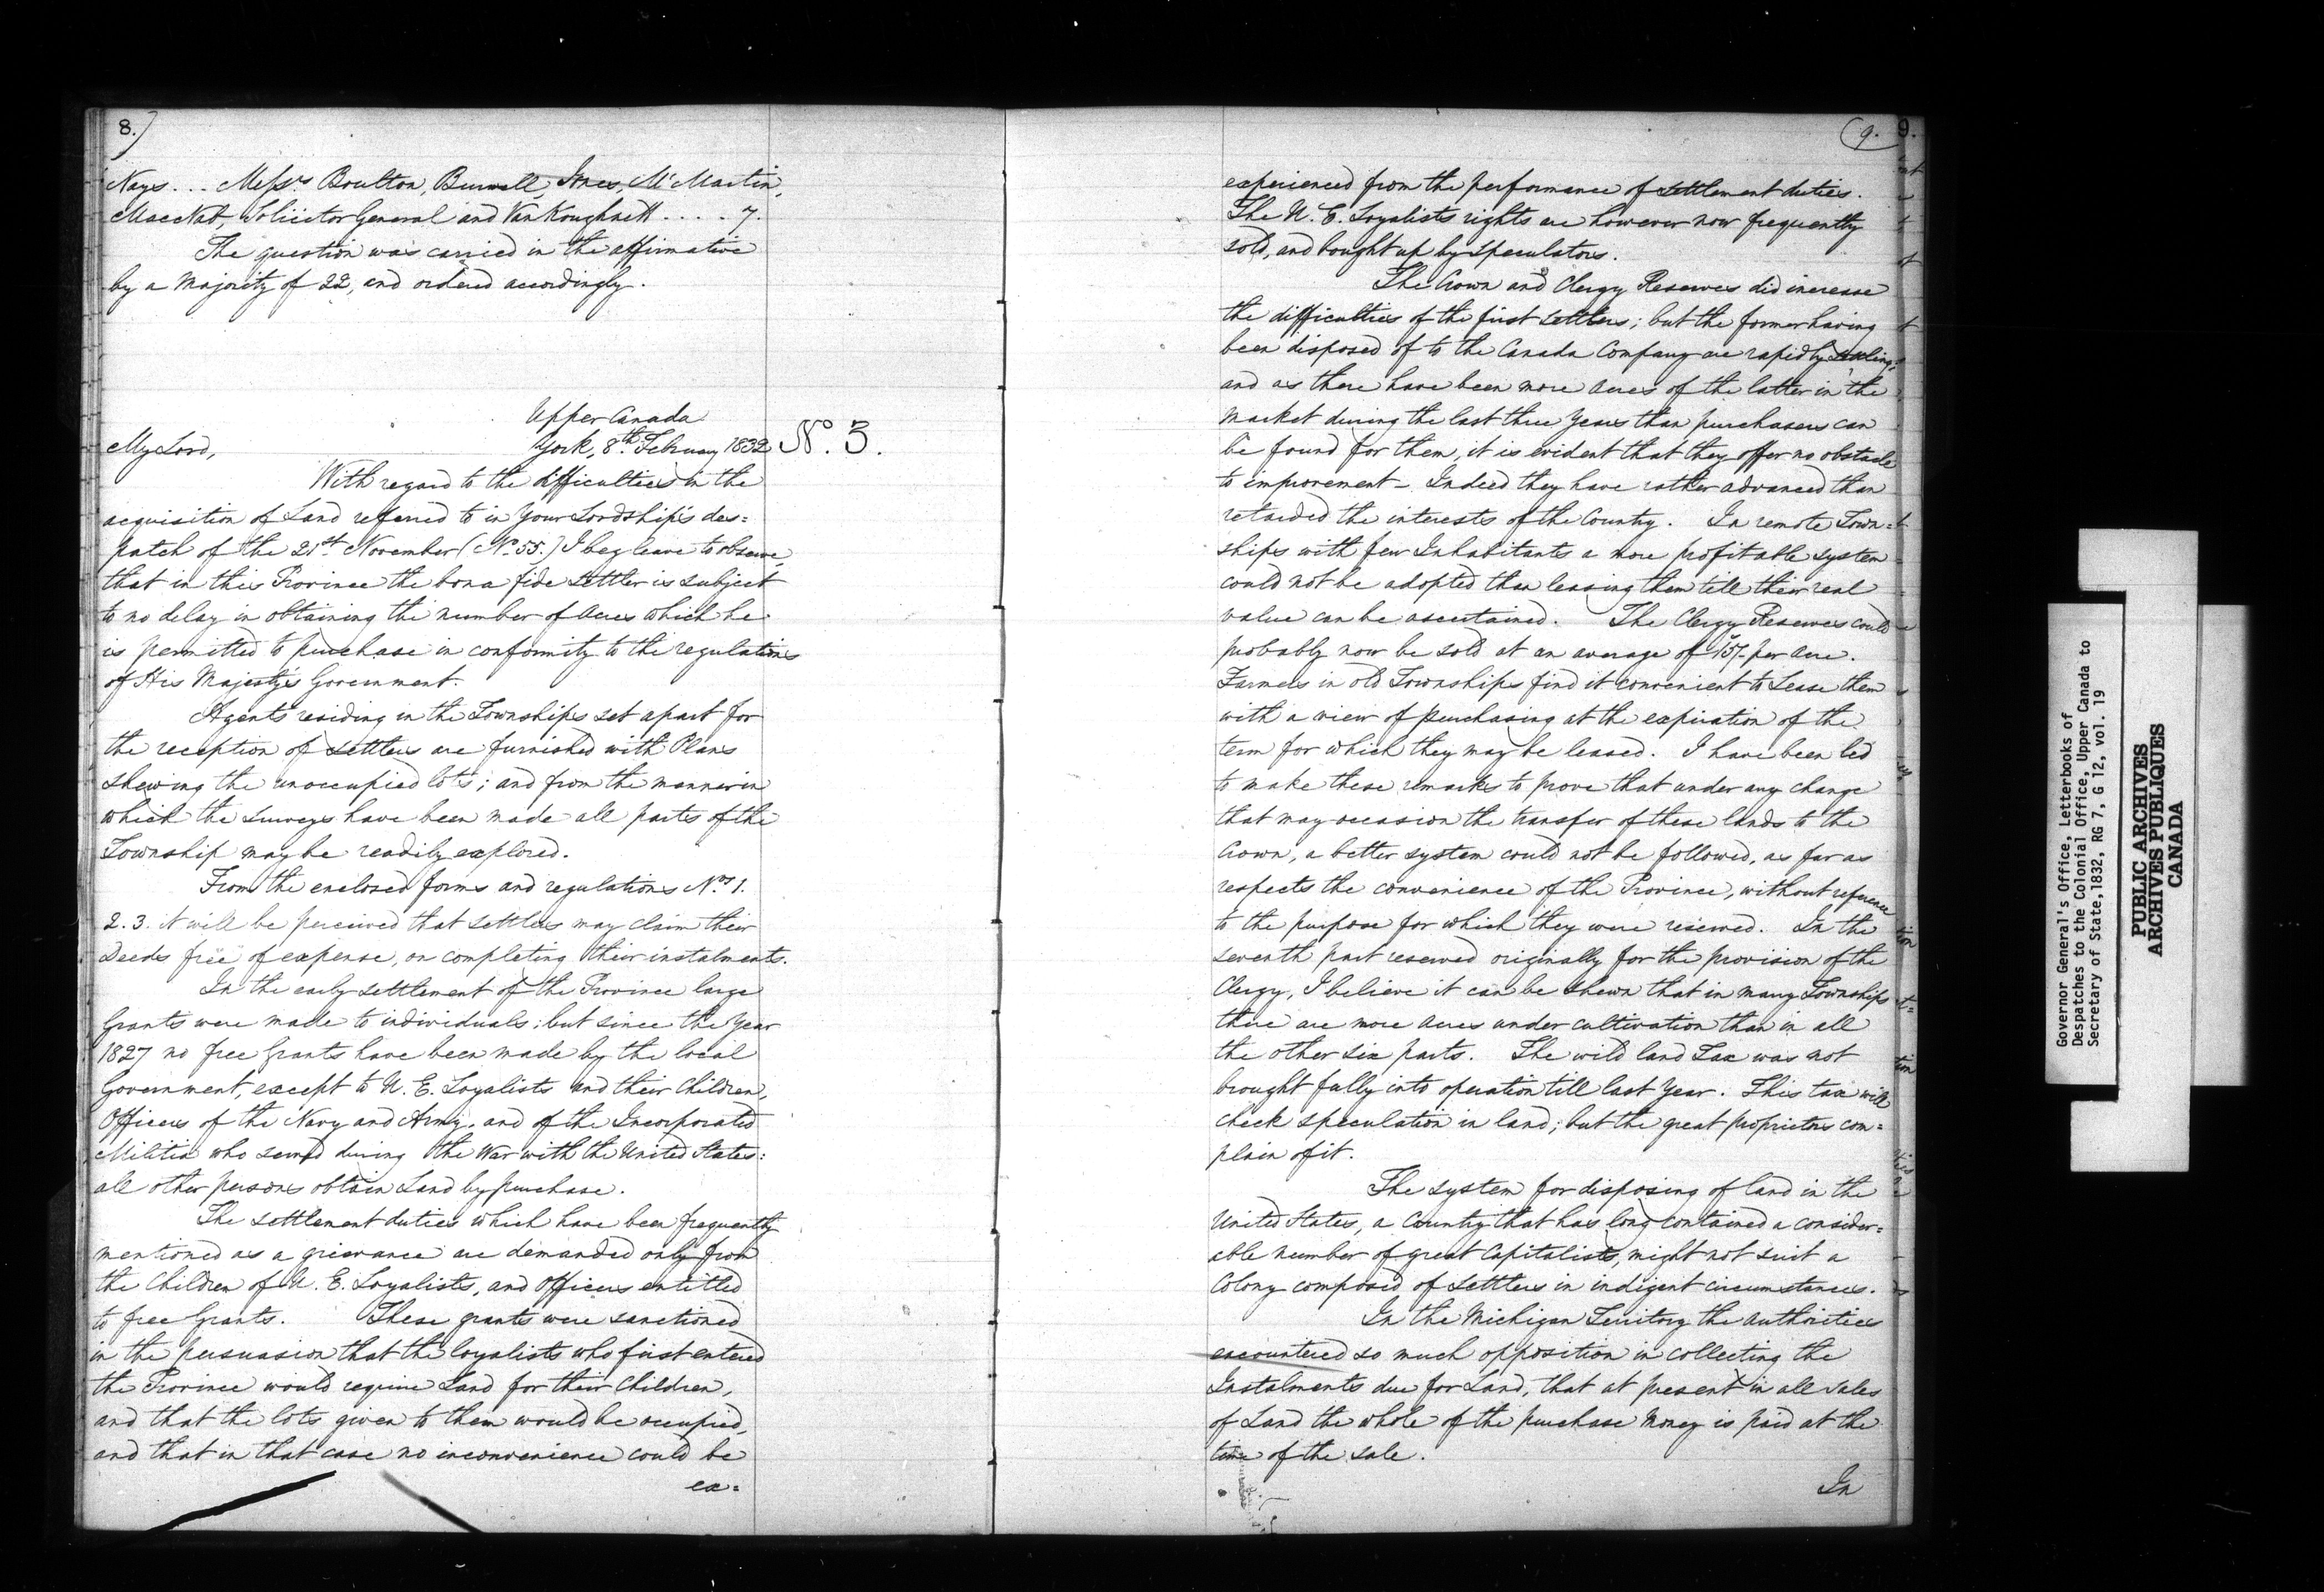 8.)
Nays ... Mess.rs Boulton, Burwell, Jones, McMartin,
MacNab, Solicitor General and VanKoughnett .... 7.
The question was carried in the affirmative
by a Majority of 22, and ordered accordingly.
Upper Canada
My Lord, York, 8.th February 1832 No. 3.
With regard to the difficulties in the
acquisition of Land referred to in Your Lordship's des=
patch of the 21st. November (No. 55.) I beg leave to observe,
that in this Province the bona fide settler is subject
to no delay in obtaining the number of Acres which he
is permitted to purchase in conformity to the regulations
of His Majesty's Government.
Agents residing in the Townships set apart for
the reception of settlers are furnished with Plans
shewing the unoccupied lots; and from the manner in
which the surveys have been made all parts of the
Township may be readily explored.
From the enclosed forms and regulations Nos 1.
2. 3. it will be perceived that settlers may claim their
Deeds free of expense, on completing their instalments.
In the early settlement of the Province large
Grants were made to individuals; but since the Year
1827 no free Grants have been made by the local
Government, except to U. E. Loyalists and their Children,
Officers of the Navy and Army, and of the Incorporated
Militia who served during the War with the United States:
all other persons obtain Land by purchase.
The settlement duties which have been frequently
mentioned as a grievance are demanded only from
the Children of U. E. Loyalists, and Officers entitled
to free Grants. These grants were sanctioned
in the persuasion that the loyalists who first entered
the Province would require Land for their Children,
and that the lots given to them would be occupied,
and that in that case no inconvenience could be
ex=
(9. 9.
experienced from the performance of settlement duties.
The U. E. Loyalists rights are however now frequently
sold, and bought up by Speculators.
The Crown and Clergy Reserves did increase
the difficulties of the first settlers; but the former having
been disposed of to the Canada Company are rapidly
and as there have been more acres of the latter in the
Market during the last three Years than purchasers can
be found for them, it is evident that they offer no obstacle
to improvement - Indeed they have rather advanced than
retarded the interests of the Country. In remote Town=
ships with few Inhabitants a more profitable system
could not be adopted than leasing them till their real
value can be ascertained. The Clergy Reserves could
probably now be sold at an average of 15/- per acre.
Farmers in old Townships find it convenient to Lease them
with a view of purchasing at the expiration of the
term for which they may be leased. I have been led
to make these remarks to prove that under any change
that may occasion the transfer of these lands to the
Crown, a better system could not be followed, as far as
respects the convenience of the Province, without reference
to the purpose for which they were reserved. In the
seventh part reserved originally for the provision of the
Clergy, I believe it can be shewn that in many Townships
there are more acres under cultivation than in all
the other six parts. The wild land Tax was not
brought fully into operation till last Year. This tax will
check speculation in land; but the great proprietors com=
plain of it.
The system for disposing of land in the
United States, a Country that has long contained a consider=
able number of great Capitalists, might not suit a
Colony composed of settlers in indigent circumstances.
In the Michigan Territory the authorities
encountered so much opposition in collecting the
Instalments due for Land, that at present in all sales
of Land the whole of the purchase Money is paid at the
time of the sale.
In
Governor General's Office, Letterbooks of
Despatches to the Colonial Office, Upper Canada to
Secretary of State,1832, RG 7, G 12, vol. 19
PUBLIC ARCHIVES
ARCHIVES PUBLIQUES
CANADA